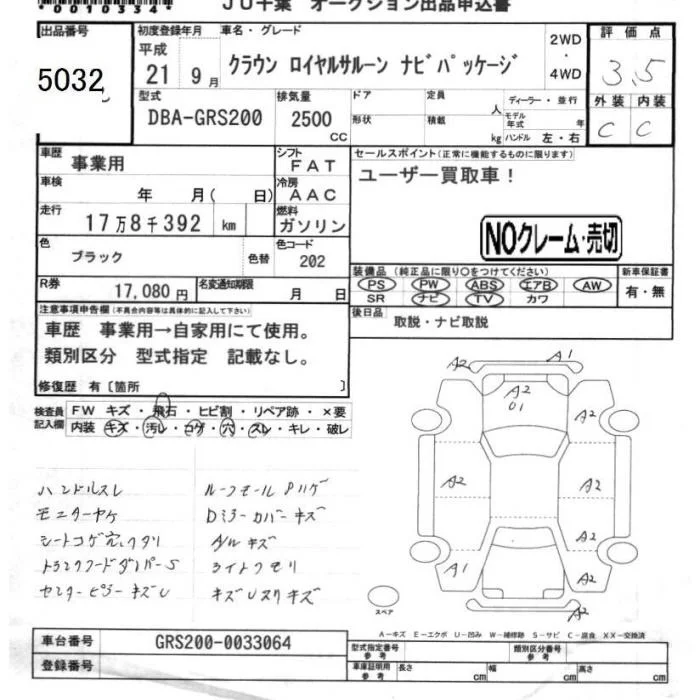 00103344
JU千葉 オークション出品申込書
出品番号
5032
初度登録年月
平成
21 9月
車名・グレード
クラウン ロイヤルサルーン ナビパッケージ
2WD
・
4WD
評価点
3.5
外装 内装
C C
型式
DBA-GRS200
排気量
2500
CC
ドア
定員
人
ディーラー・並行
形状
積載
kg
モデル年式
年
ハンドル 左・右
車歴
事業用
シフト
FAT
車検
年 月( 日)
冷房
AAC
走行
17万8千392 km
燃料
ガソリン
色
ブラック
色替
色コード
202
R券
17,080円
名変通知期限
月 日
セールスポイント(正常に機能するものに限ります)
ユーザー買取車!
NOクレーム・売切
装備品 (純正品に限り○をつけてください)
PS PW ABS エアB AW
SR ナビ TV カワ
新車保証書
有・無
後日品
取説・ナビ取説
注意事項申告欄(不具合内容等は具体的に記入して下さい)
車歴 事業用→自家用にて使用。
類別区分 型式指定 記載なし。
修復歴 有〔箇所 〕
検査員記入欄
FW キズ・飛石・ヒビ割・リペア跡・×要
内装 キズ・汚レ・コゲ・穴・スレ・キレ・破レ
ハンドルスレ
モニターヤケ
シートコゲ穴、ヘタリ
トランクフードダンパーS
センターピラーキズU
ルーフモールハゲ
Dミラーカバーキズ
A/Wキズ
ライトクモリ
キズUスリキズ
A2 A1
A2
01
A2
A2 A2
A1 A2
A2
スペア
A-キズ E-エクボ U-凹み W-補修跡 S-サビ C-腐食 XX-交換済
車台番号
GRS200-0033064
登録番号
型式指定番号
参考
類別区分番号
参考
車庫証明用
参考
長さ cm
幅 cm
高さ cm